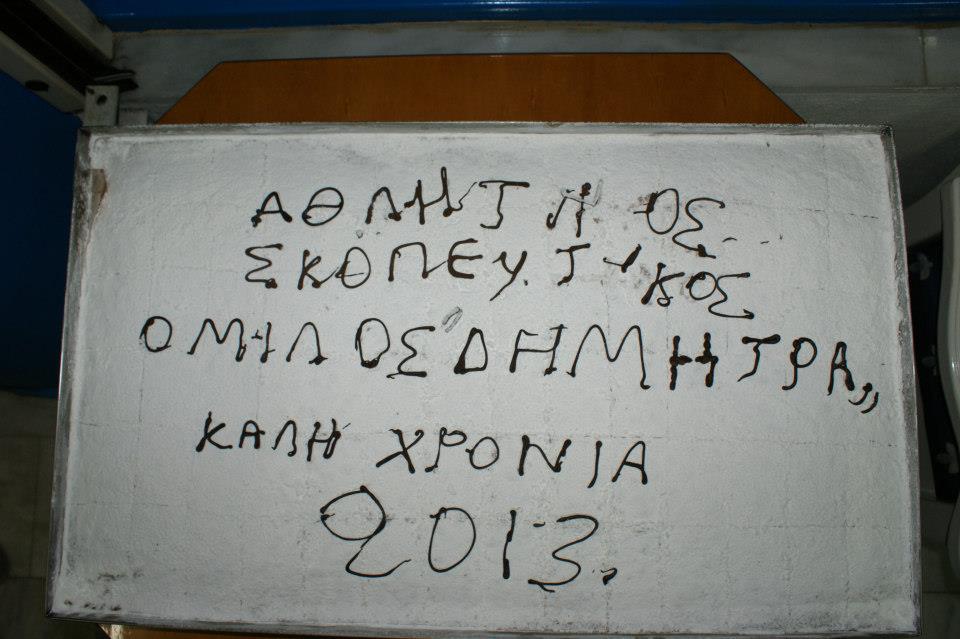 ΑΘΛΗΤΙΚΟΣ
ΣΚΟΠΕΥΤΙΚΟΣ
ΟΜΙΛΟΣ "ΔΗΜΗΤΡΑ,,
ΚΑΛΗ ΧΡΟΝΙΑ
2013.